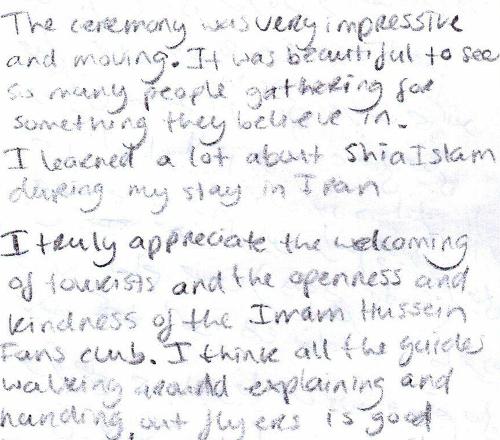 The ceremony was very impressive
and moving. It was beautiful to see
so many people gathering for
something they believe in.
I learned a lot about Shia Islam
during my stay in Iran
I truly appreciate the welcoming
of tourists and the openness and
kindness of the Imam Hussein
Fans club. I think all the guides
walking around explaining and
handing out flyers is good